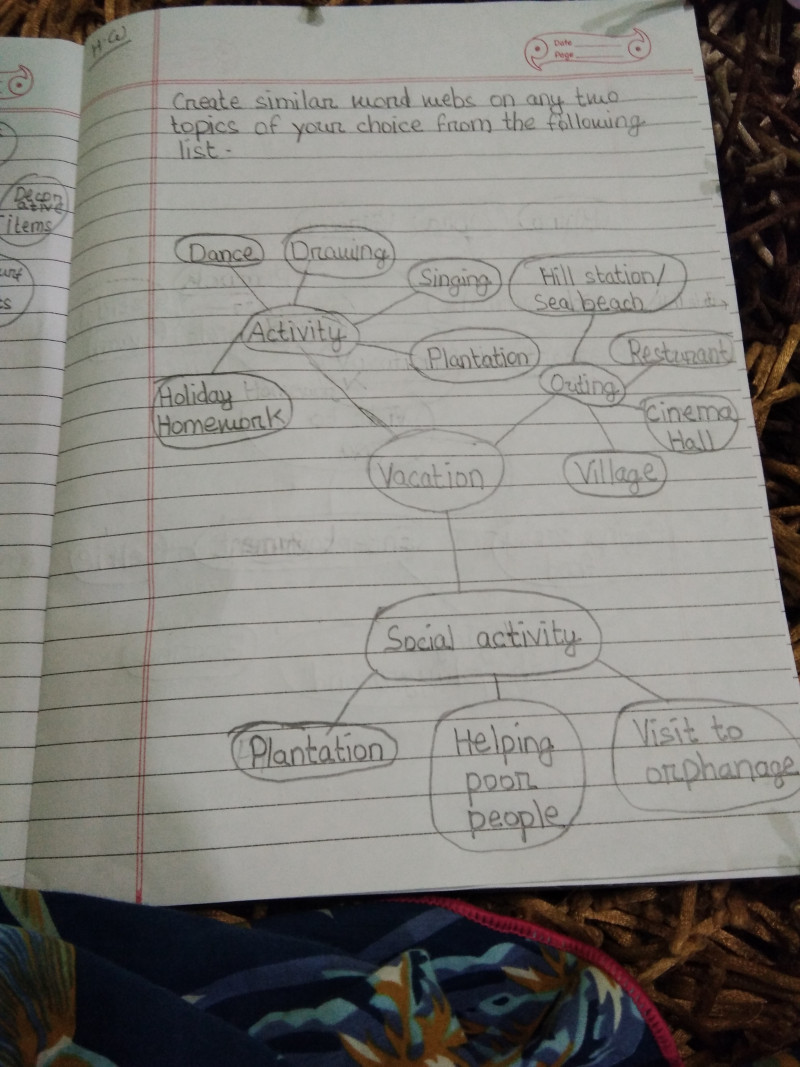 H.W
Date
Page
Create similar word webs on any two
topics of your choice from the following
list.
Decor
ative
items
Dance
Drawing
Singing
Hill station/
Sea beach
Activity
Plantation
Resturant
Outing
Holiday
Homework
Cinema
Hall
Vacation
Village
Social activity
Plantation
Helping
poor
people
Visit to
orphanage